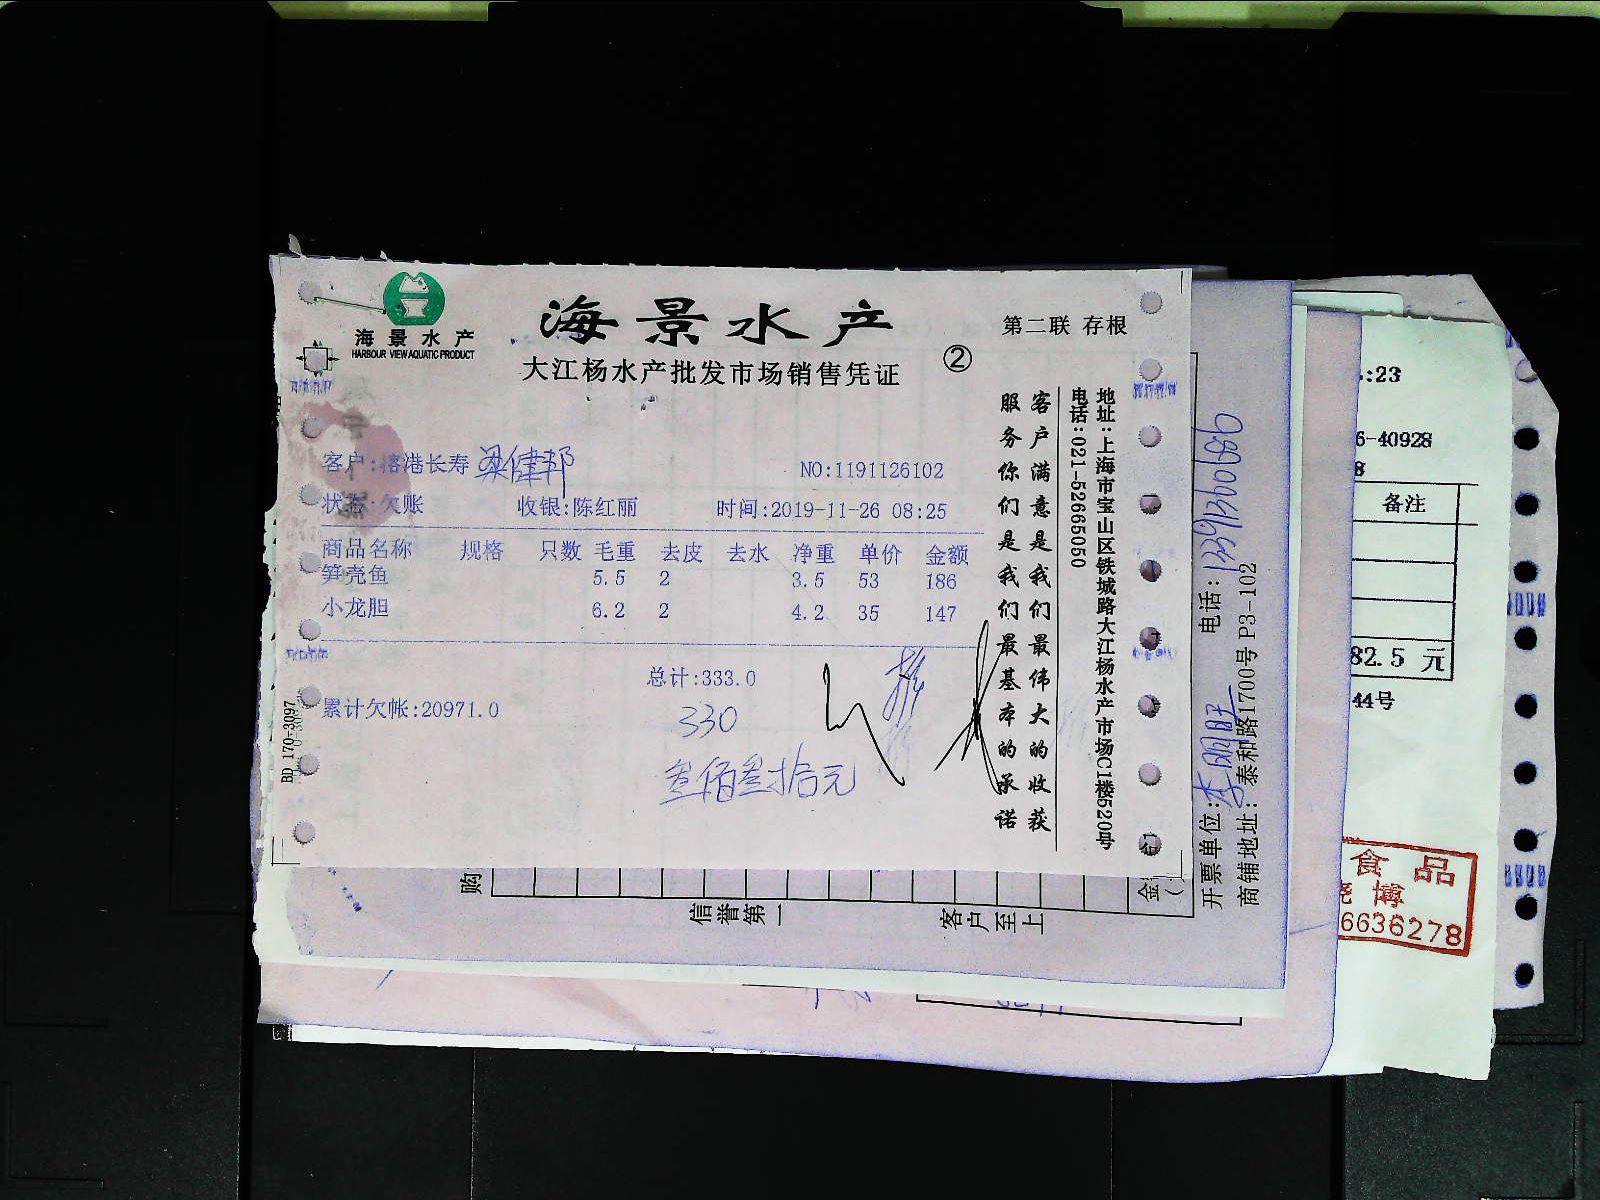 海景水产
HARBOUR VIEW AQUATIC PRODUCT
海景水产
大江杨水产批发市场销售凭证
②
第二联 存根
客户:榕港长寿 梁健邦
NO:1191126102
状态:欠账 收银:陈红丽 时间:2019-11-26 08:25
商品名称 规格 只数 毛重 去皮 去水 净重 单价 金额
笋壳鱼 5.5 2 3.5 53 186
小龙胆 6.2 2 4.2 35 147
总计:333.0
累计欠帐:20971.0
330
叁佰叁拾元
客户满意是我们最伟大的收获
服务你们是我们最基本的承诺
地址:上海市宝山区铁城路大江杨水产市场C1楼520号
电话:021-52665050
BD 170-3097
购
信誉第一
客户至上
金
开票单位:李明旺 电话:
商铺地址:泰和路1700号 P3-102
:23
6-40928
8
备注
82.5 元
44号
食品
博
6636278